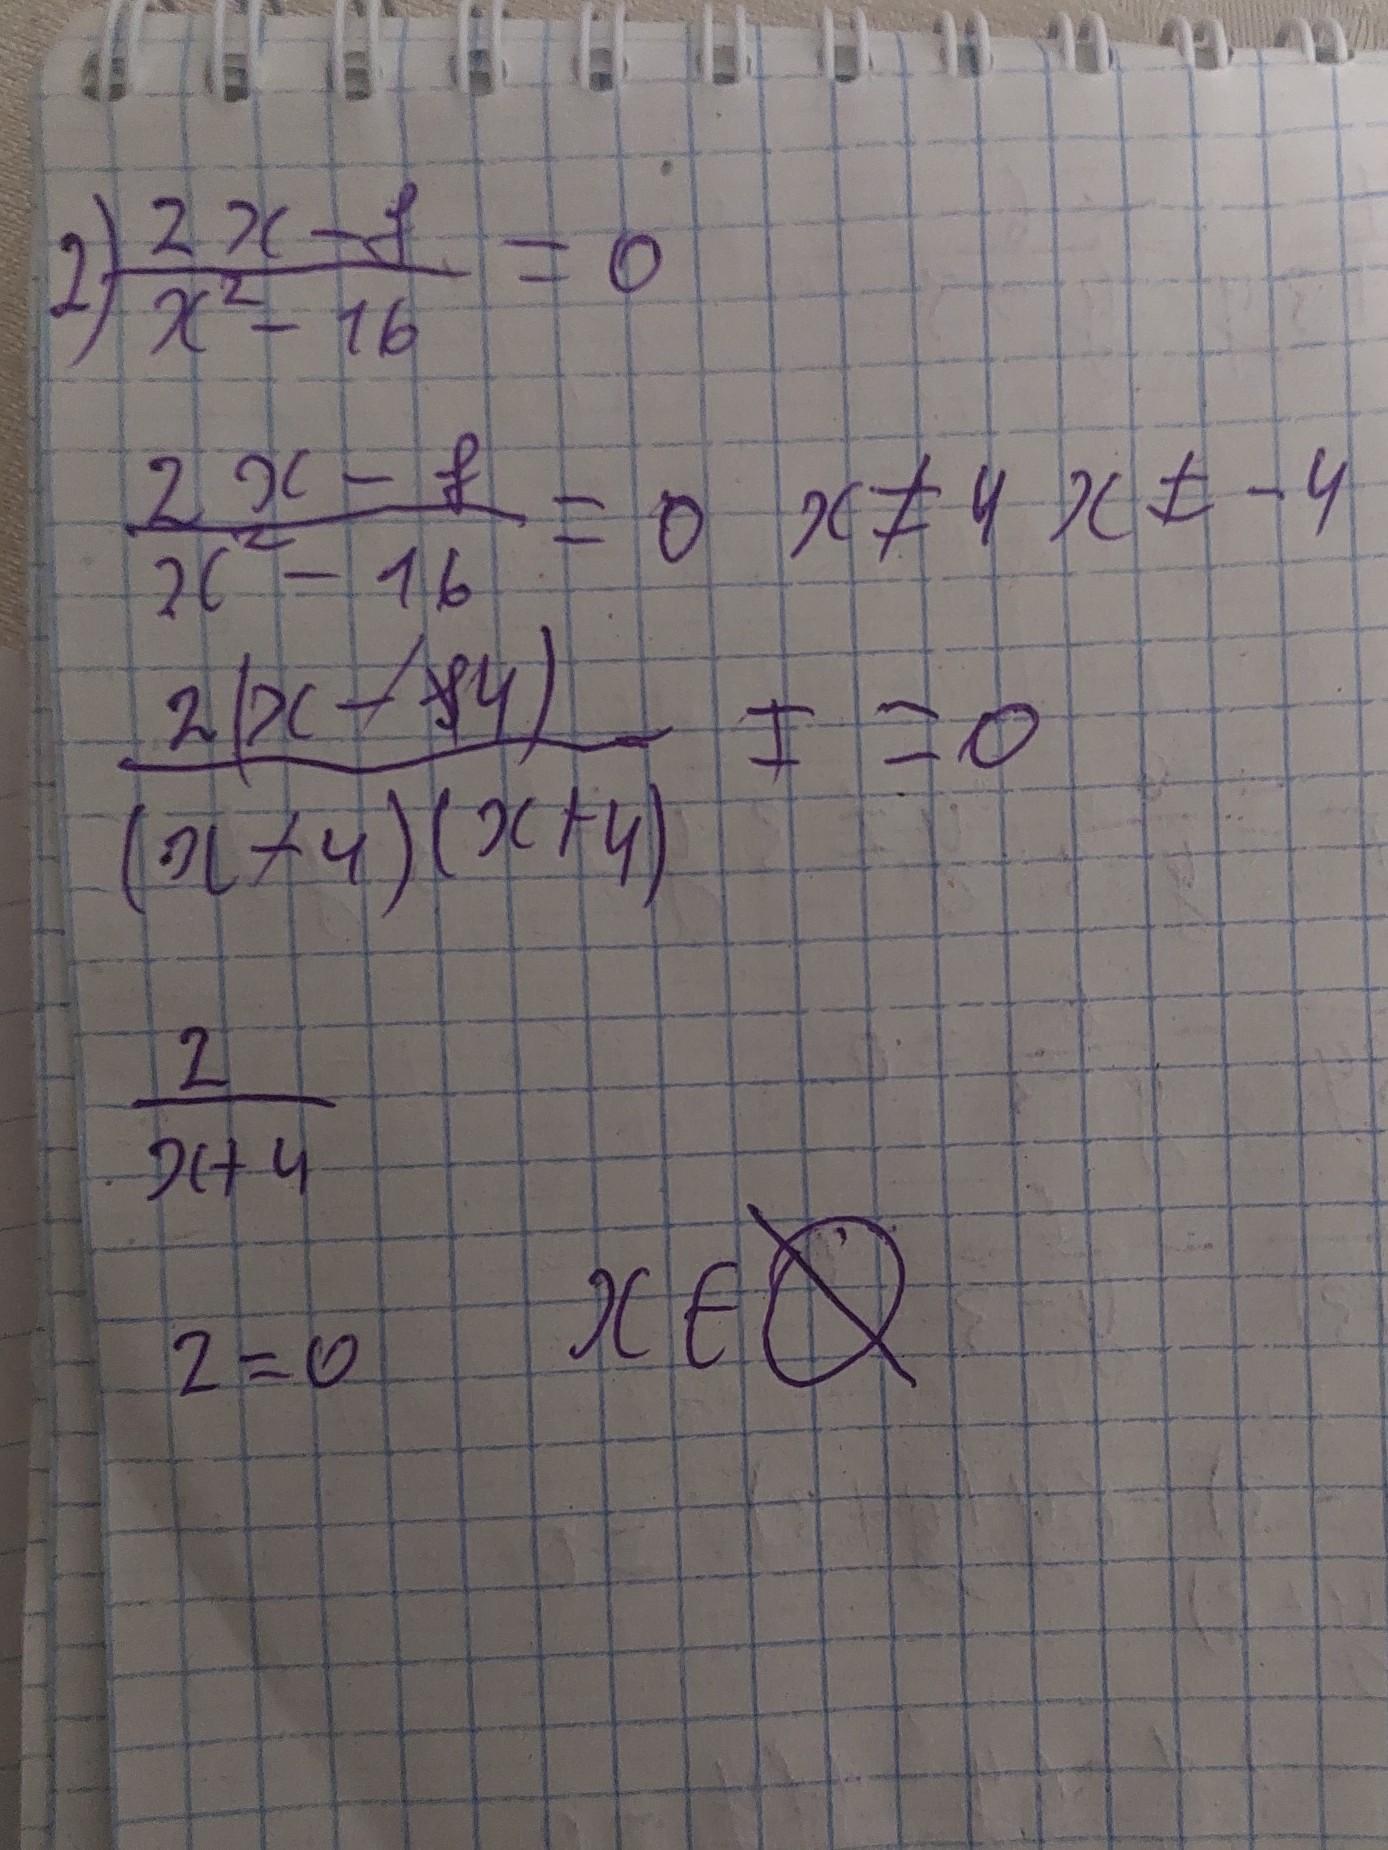 2) (2x-8)/(x²-16) = 0
(2x-8)/(x²-16) = 0 x≠4 x≠-4
2(x-4)/((x-4)(x+4)) = 0
2/(x+4)
2=0 x∈∅